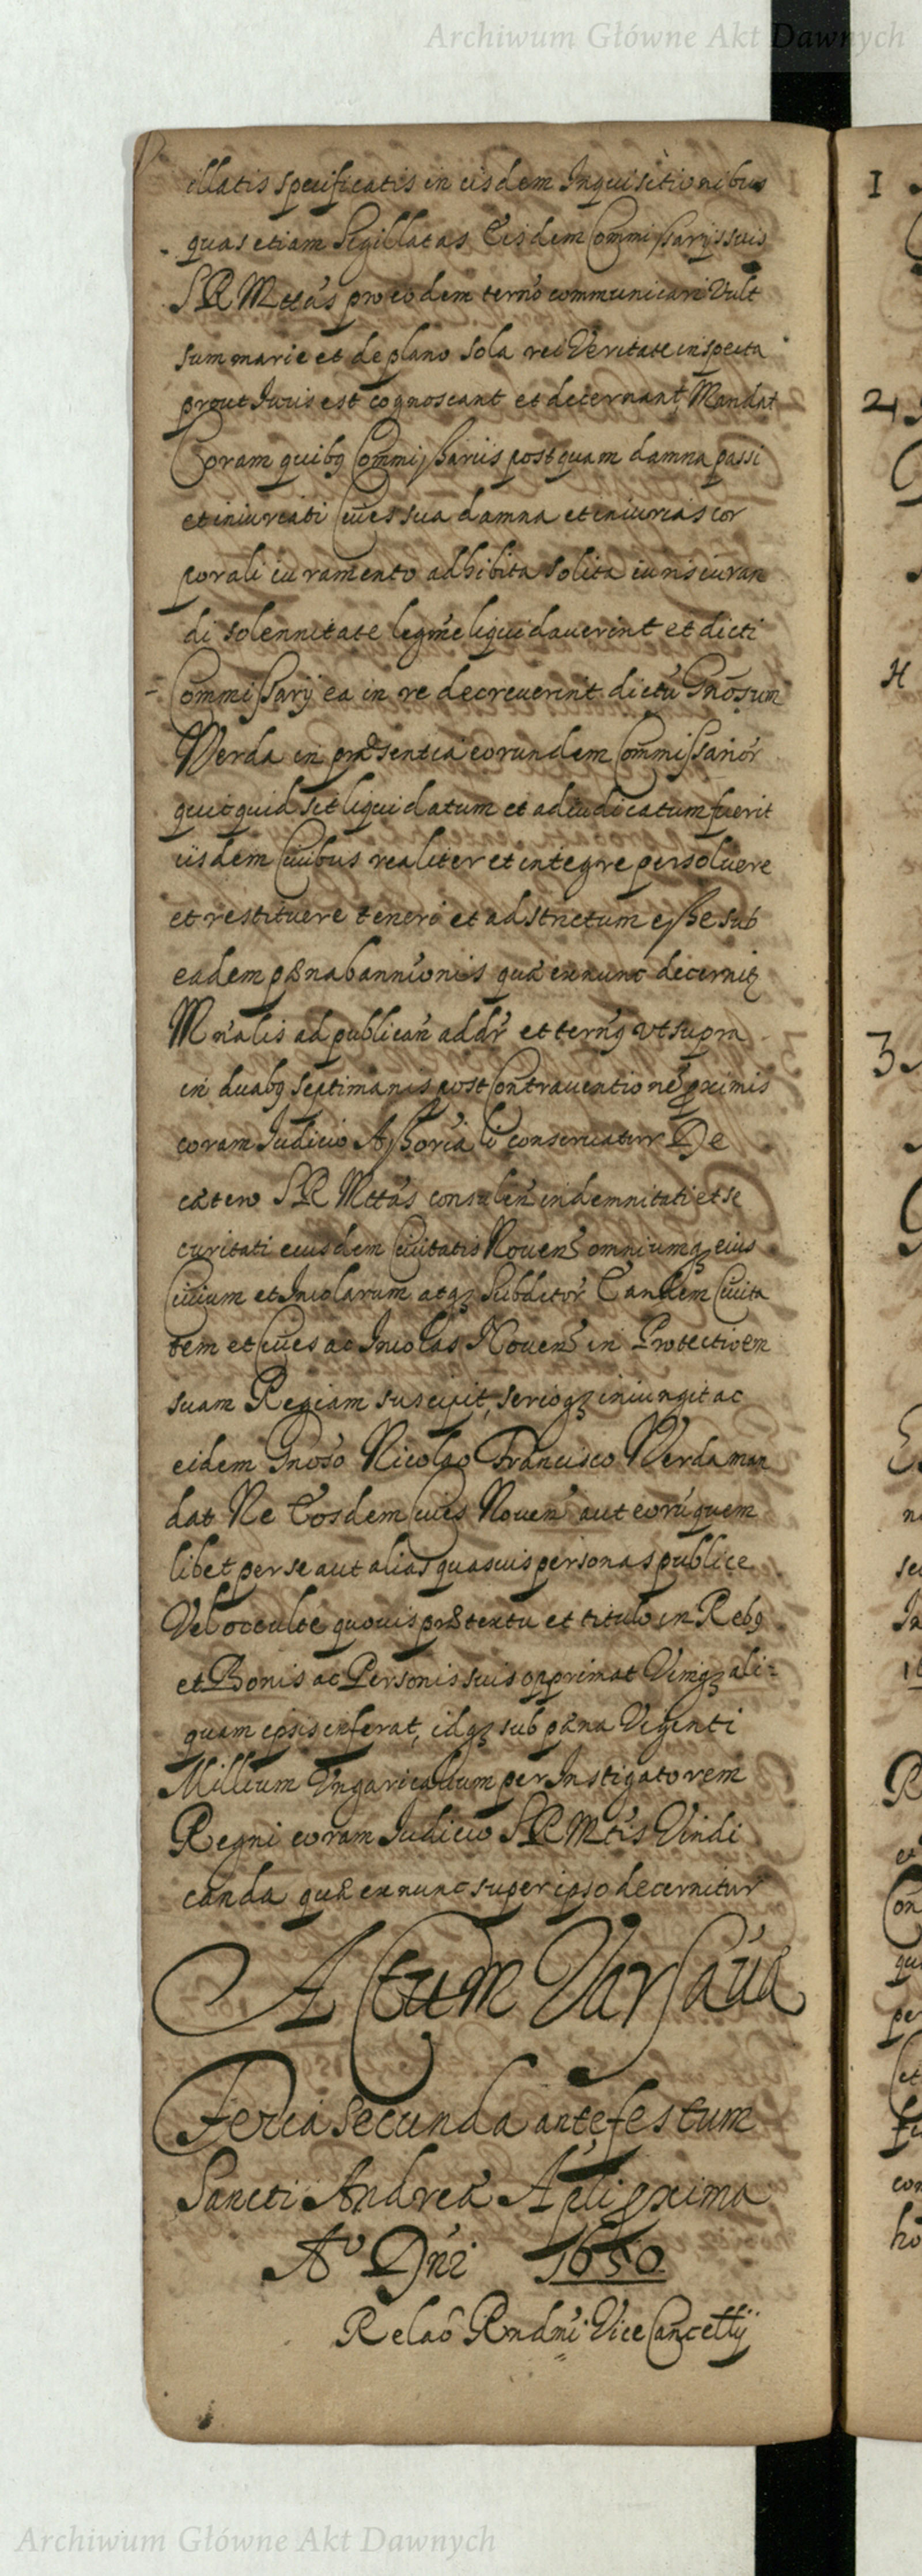 Archiwum Główne Akt Dawnych
illatis specificatis in eisdem Inquisitionibus
quas etiam Sigillatas Eisdem Commissarijs suis
SRMttas pro eodem terno communicari Vult
summarie et de plano sola rei Veritate inspecta
prout Iuris est cognoscant et decernant, Mandat
Coram quibq Commissariis postquam damna passi
et iniuriati Cives sua damna et iniurias cor
porali iuramento adhibita solita iurisiuran
di solennitate legme liquidaverint et dicti
Commissarij ea in re decreverint dictu Gnosum
Werda in præsentia eorundem Commissarior
quicquid sit liquidatum et adiudicatum fuerit
iisdem Civibus realiter et integre persoluere
et restituere teneri et adstrictum esse sub
eadem pæna bannionis quæ exnunc decernit
Mnalis ad publican addr et ternq vt supra
in duabq septimanis post Contrauentione pximis
coram Iudicio Assoriali conseruatur De
cætero SRMttas consulen indemnitati et se
curitati eiusdem Ciuitatis Nouen omniumq eius
Ciuium et Incolarum atq Subditor Eandem Ciuita
tem et Ciues ac Incolas Nouen in Protectionem
suam Regiam suscipit, serioq iniungit ac
eidem Gnoso Nicolao Francisco Werda man
dat Ne Eosdem Ciues Nouen aut eoru quem
libet per se aut alias quasuis personas publice
Vel occulte quouis prætextu et titulo in Rebq
et Bonis ac Personis suis opprimat Vimq ali=
quam ipsis inferat, idq sub pæna Viginti
Millium Vngaricalium per Instigatorem
Regni coram Iudicio SRMtis Vindi
canda quæ exnunc super ipso decernitur
Actum Varsauiæ
Feria secunda ante festum
Sancti Andreæ Apli pxima
Ao Dni 1650
Relao Rndmi Vice Cancellij
1
2
H
3
Archiwum Główne Akt Dawnych